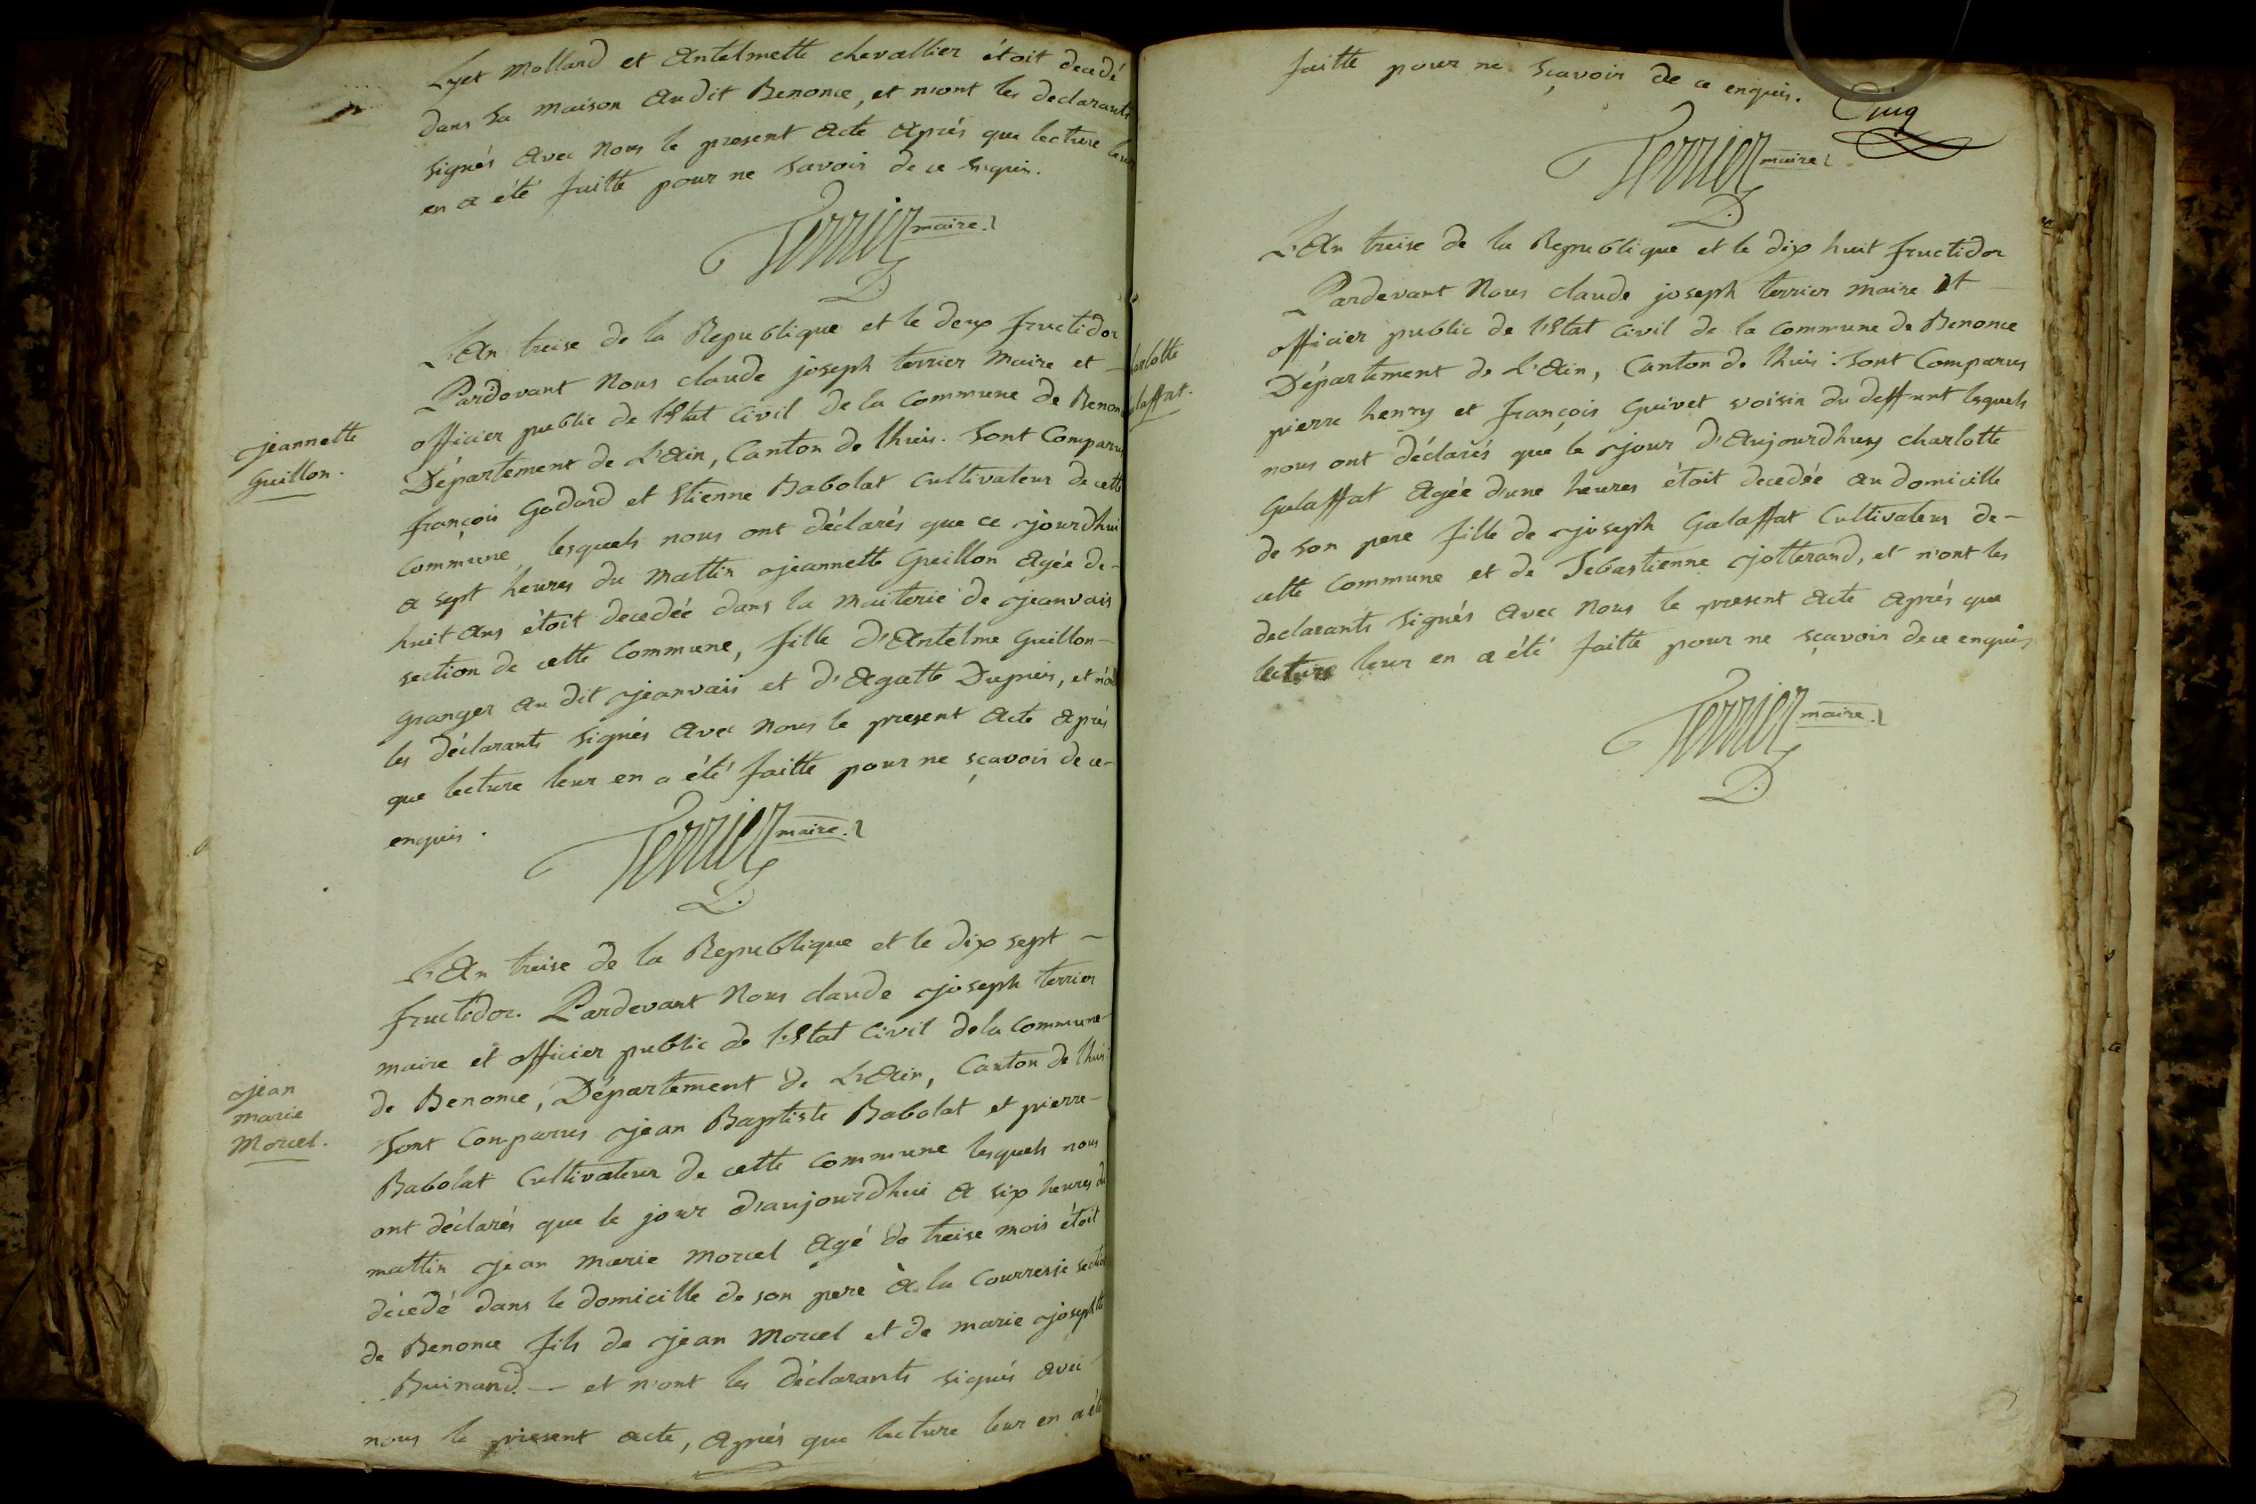 Lyet Mollard et Antelmette chevallier étoit decedé
dans sa maison audit Benonce, et n'ont les declarants
signés avec Nous le present Acte Après que lecture leur
en a été faitte pour ne savoir de ce enquis.
Terrier maire.
D.
L'An treise de la Republique et le deux fructidor
Pardevant Nous claude joseph terrier Maire et
officier public de l'Etat Civil de la Commune de Benonce
Département de L'Ain, Canton de lhuis. Sont Comparus
jeannette
Guillon.
françois Godard et Etienne Babolat Cultivateur de cette
Commune, lesquels nous ont déclarés que ce jourdhui
a sept heures du mattin jeannette Guillon Agée de
huit Ans étoit decedée dans la maiterie de jeanvais
section de cette Commune, fille d'Antelme Guillon
Granger au dit jeanvais et d'Agatte Dupuis, et n'ont
les déclarants signés avec Nous le present Acte après
que lecture leur en a été faitte pour ne sçavoir de ce
enquis.
Terrier maire.
D.
L'An treise de la Republique et le dix sept
fructidor. Pardevant Nous claude joseph terrier
maire et officier public de l'Etat Civil de la Commune
de Benonce, Département de L'Ain, Canton de lhuis
jean
marie
Morcel.
Sont Comparus jean Baptiste Babolat et pierre
Babolat Cultivateur de cette Commune lesquels nous
ont déclarés que le jour d'aujourdhui a six heures du
mattin jean marie morcel Agé de treise mois étoit
décedé dans le domicille de son pere à la Courrerie section
de Benonce fils de jean Morcel et de marie josephtte
Buinand — et n'ont les déclarants signés avec
nous le present acte, après que lecture leur en a été
faitte pour ne sçavoir de ce enquis.
Cinq
Terrier maire
D.
L'An treise de la Republique et le dix huit fructidor
Pardevant Nous claude joseph terrier Maire Et
officier public de l'Etat Civil de la Commune de Benonce
arlotte
laffat.
Département de L'Ain, Canton de lhuis : Sont Comparus
pierre henry et françois Guivet voisin du deffunt lesquels
nous ont déclarés que le jour d'Aujourdhuy charlotte
Galaffat Agée d'une heures étoit decedée au domicille
de son pere fille de joseph Galaffat Cultivateur de
cette Commune et de Sebastienne jotterand, et n'ont les
declarants signés avec Nous le present Acte après que
lecture leur en a été faitte pour ne sçavoir de ce enquis
Terrier maire.
D.